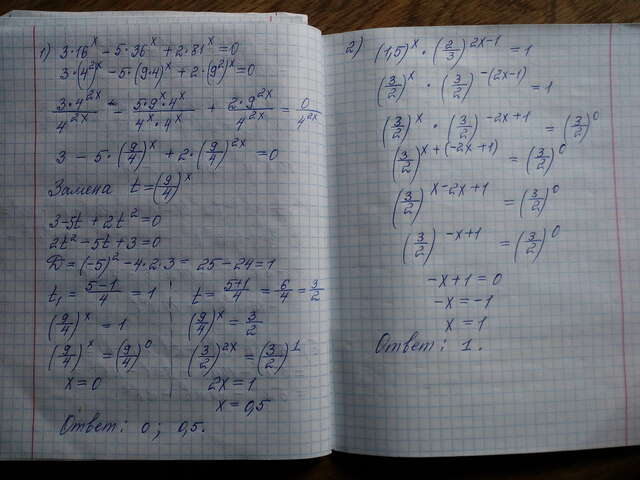 1) 3·16^x − 5·36^x + 2·81^x = 0
3·(4²)^x − 5·(9·4)^x + 2·(9²)^x = 0
3·4^2x/4^2x − 5·9^x·4^x/4^x·4^x + 2·9^2x/4^2x = 0/4^2x
3 − 5·(9/4)^x + 2·(9/4)^2x = 0
Замена t = (9/4)^x
3 − 5t + 2t² = 0
2t² − 5t + 3 = 0
D = (−5)² − 4·2·3 = 25 − 24 = 1
t₁ = 5−1/4 = 1
(9/4)^x = 1
(9/4)^x = (9/4)^0
x = 0
t = 5+1/4 = 6/4 = 3/2
(9/4)^x = 3/2
(3/2)^2x = (3/2)^1
2x = 1
x = 0,5
Ответ: 0; 0,5.
2) (1,5)^x · (2/3)^2x−1 = 1
(3/2)^x · (3/2)^−(2x−1) = 1
(3/2)^x · (3/2)^−2x+1 = (3/2)^0
(3/2)^x+(−2x+1) = (3/2)^0
(3/2)^x−2x+1 = (3/2)^0
(3/2)^−x+1 = (3/2)^0
−x+1 = 0
−x = −1
x = 1
Ответ: 1.